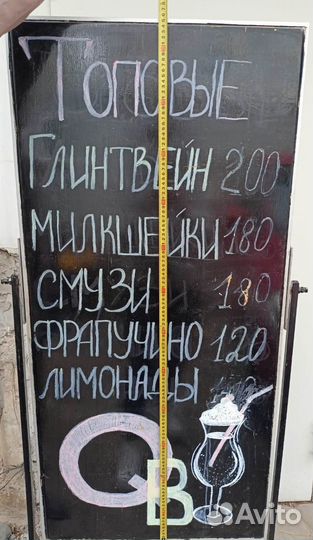 Топовые
Глинтвейн 200
милкшейки 180
смузи 180
фрапучино 120
лимонады
QB
Avito